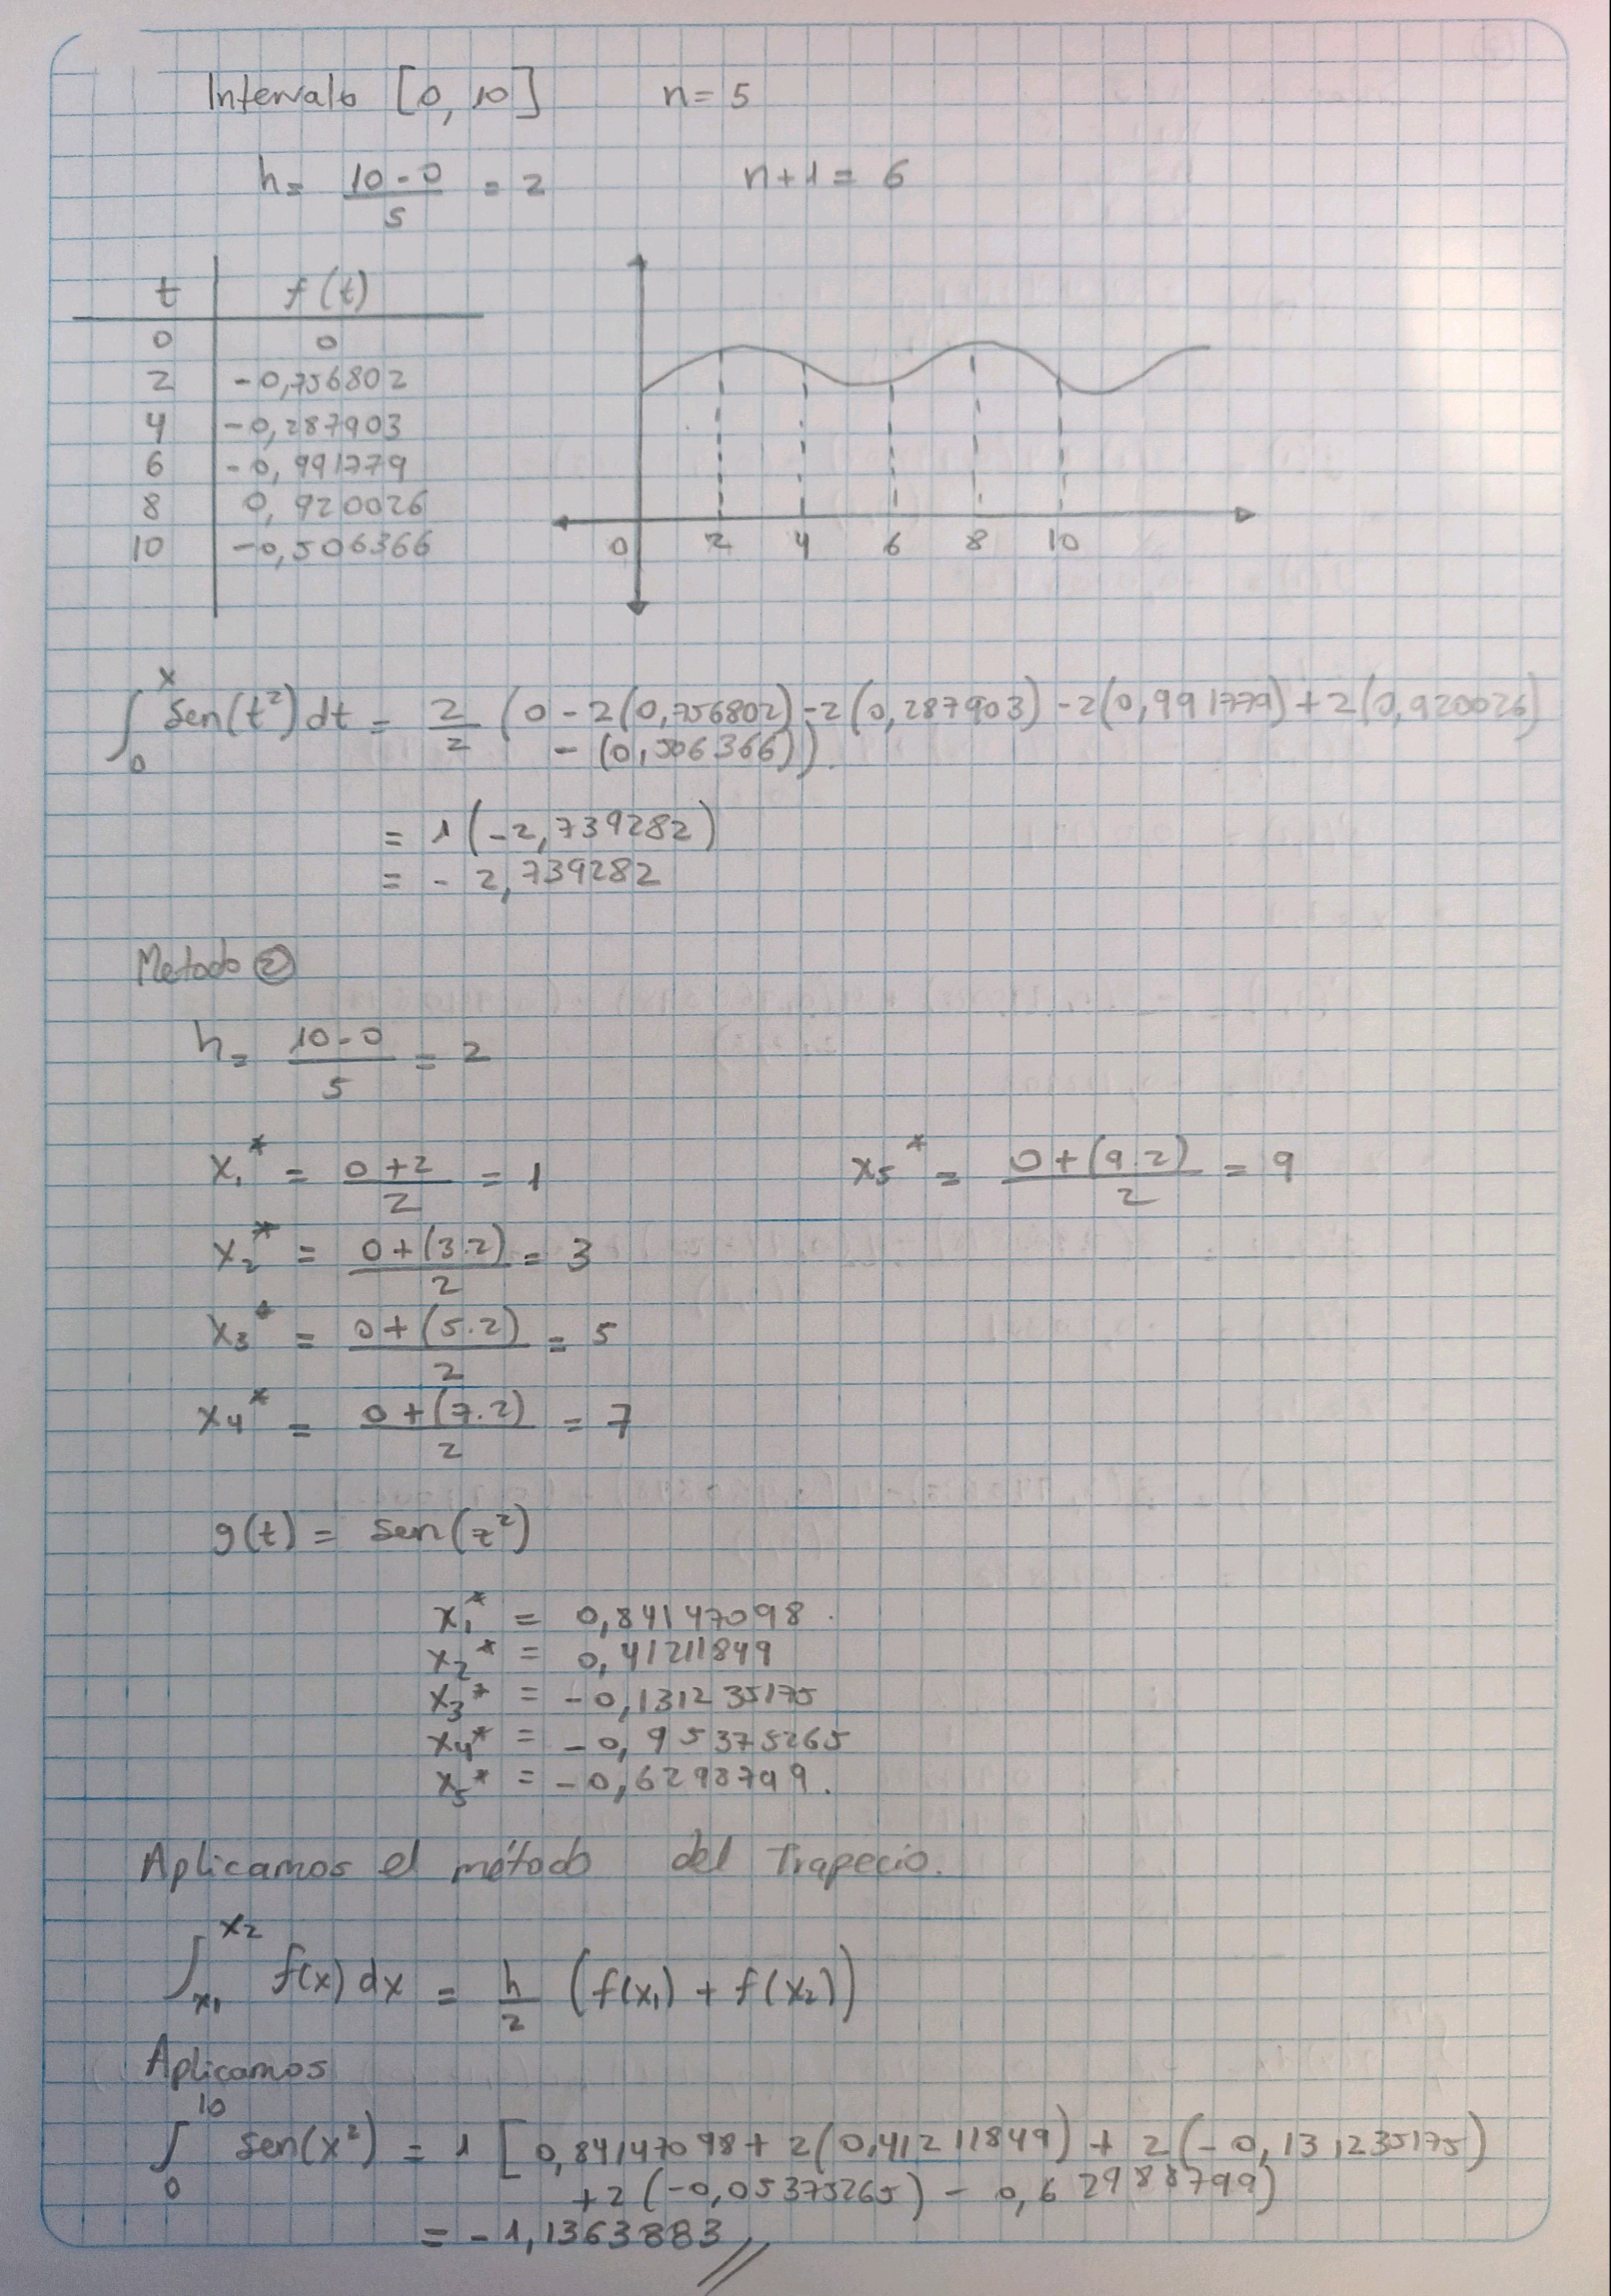 Intervalo [0, 10] n = 5
h = (10 - 0)/5 = 2 n+1 = 6
t f(t)
0 0
2 -0,756802
4 -0,287903
6 -0,991779
8 0,920026
10 -0,506366
0 2 4 6 8 10
∫₀ˣ Sen(t²) dt = 2/2 (0 - 2(0,756802) - 2(0,287903) - 2(0,991779) + 2(0,920026)
- (0,506366)).
= 1(-2,739282)
= - 2,739282
Metodo ②
h = (10 - 0)/5 = 2
x₁* = (0 + 2)/2 = 1 x₅* = (0 + (9.2))/2 = 9
x₂* = (0 + (3.2))/2 = 3
x₃* = (0 + (5.2))/2 = 5
x₄* = (0 + (7.2))/2 = 7
g(t) = sen(z²)
x₁* = 0,84147098.
x₂* = 0,41211849
x₃* = -0,131235175
x₄* = -0,95375265
x₅* = -0,6298799.
Aplicamos el método del Trapecio.
∫ₓ₁ˣ² f(x) dx = h/2 (f(x₁) + f(x₂))
Aplicamos
∫₀¹⁰ sen(x²) = 1 [0,84147098 + 2(0,41211849) + 2(-0,131235175)
+2(-0,05375265) - 0,62988799)
= -1,1363883 //